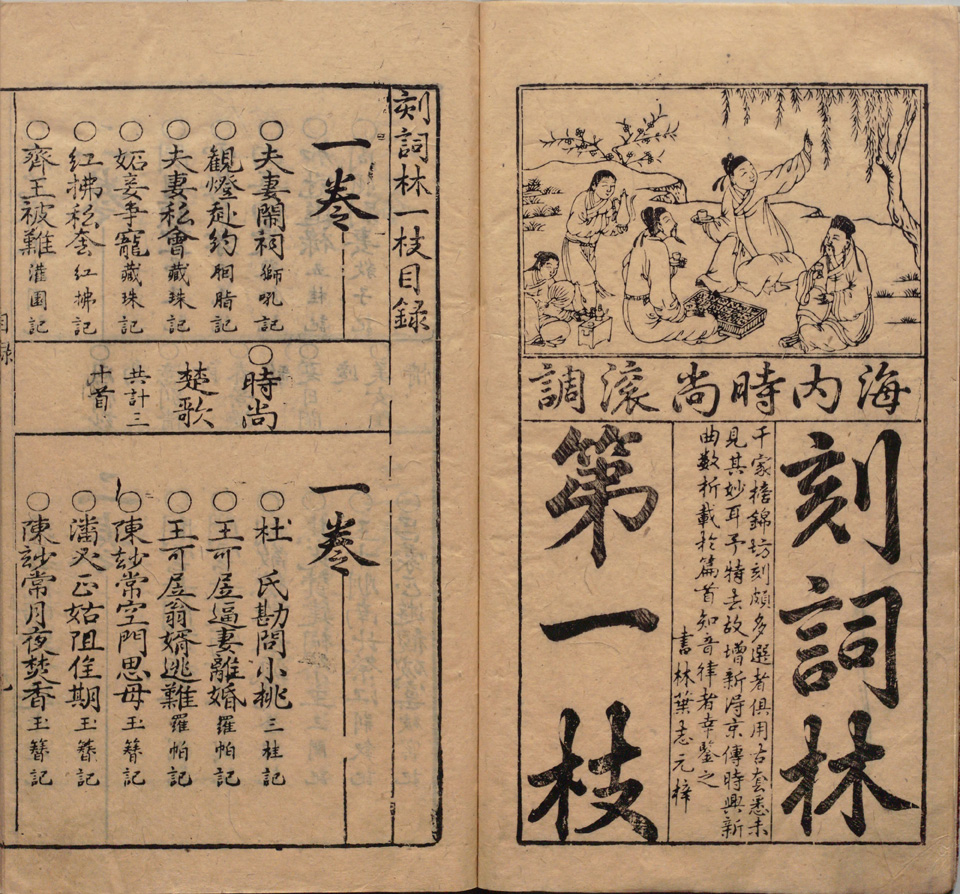 海内時尚滾調
刻詞林
千家摘錦坊刻頗多選者俱用古套悉未
見其妙耳予特去故增新得京傳時興新
曲數折載於篇首知音律者幸鑒之
書林葉志元梓
第一枝
刻詞林一枝目録
一卷
○夫妻鬧祠 獅吼記
○観燈赴約 胭脂記
○夫妻私會 藏珠記
○妬妾争寵 藏珠記
○紅拂私奔 紅拂記
○齊王被難 灌園記
○時尚
楚歌
共計三
十首
一卷
○杜氏勘問小桃 三桂記
○王可居逼妻離婚 羅帕記
○王可居翁婿逃難 羅帕記
○陳妙常空門思母 玉簪記
○潘必正姑阻佳期 玉簪記
○陳妙常月夜焚香 玉簪記
目録